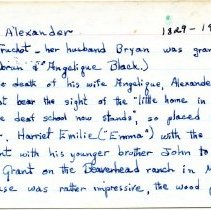 Alexander 1829-19
Truchot - her husband Bryan was gran
brun & Angelique Black.)
e death of his wife Angelique, Alexande
t bear the sight of the "little home in
e deaf school now stands", so placed
r. Harriet Emilie ("Emma") with the
nt with his younger brother John to
Grant on the Beaverhead ranch in M
se was rather impressive, the wood